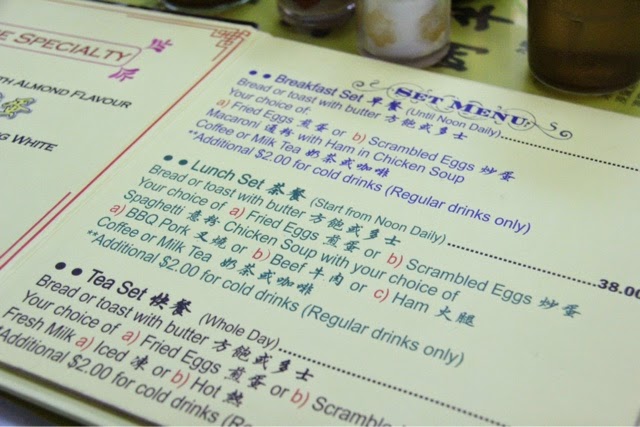 E SPECIALTY
TH ALMOND FLAVOUR
NG WHITE
SET MENU
●● Breakfast Set 早餐 (Until Noon Daily)
Bread or toast with butter 方飽或多士
Your choice of:
a) Fried Eggs 煎蛋 or b) Scrambled Eggs 炒蛋
Macaroni 通粉 with Ham in Chicken Soup
Coffee or Milk Tea 奶茶或咖啡
**Additional $2.00 for cold drinks (Regular drinks only)
●● Lunch Set 茶餐 (Start from Noon Daily) 38.00
Bread or toast with butter 方飽或多士
Your choice of a) Fried Eggs 煎蛋 or b) Scrambled Eggs 炒蛋
Spaghetti 意粉 Chicken Soup with your choice of
a) BBQ Pork 叉燒 or b) Beef 牛肉 or c) Ham 火腿
Coffee or Milk Tea 奶茶或咖啡
**Additional $2.00 for cold drinks (Regular drinks only)
●● Tea Set 快餐 (Whole Day)
Bread or toast with butter 方飽或多士
Your choice of a) Fried Eggs 煎蛋 or b) Scrambl
Fresh Milk a) Iced 凍 or b) Hot 熱
*Additional $2.00 for cold drinks (Re